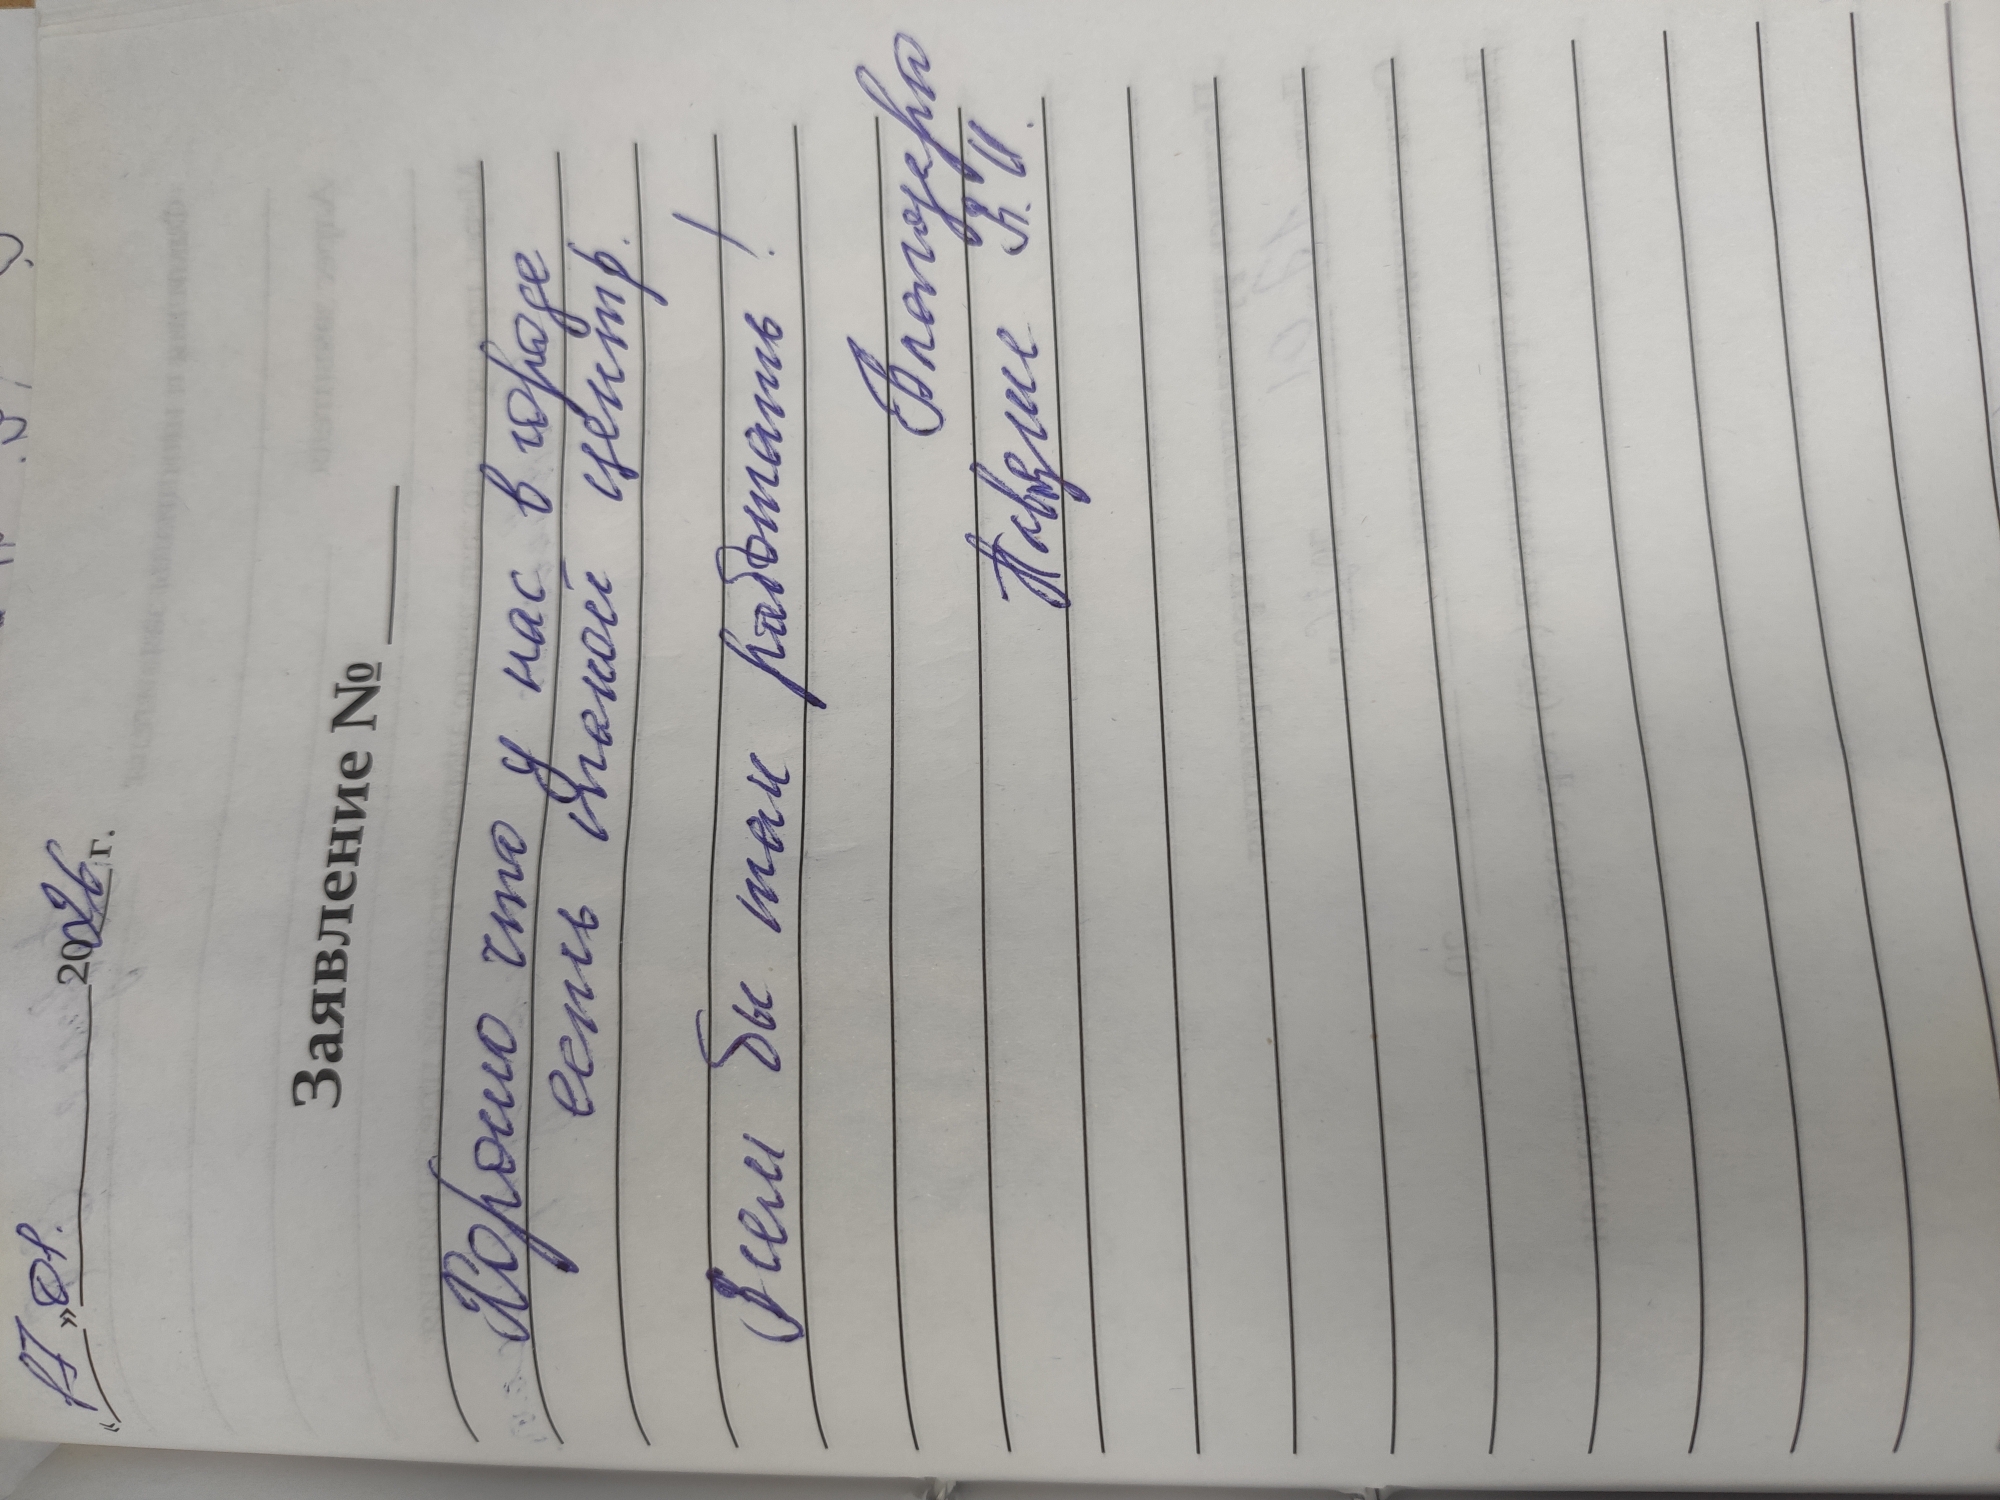 « 27 » 01. 2026 г.
Заявление № ____
Хорошо что у нас в городе
есть такой центр.
Всем бы так работать!
Благодарю
К. И.